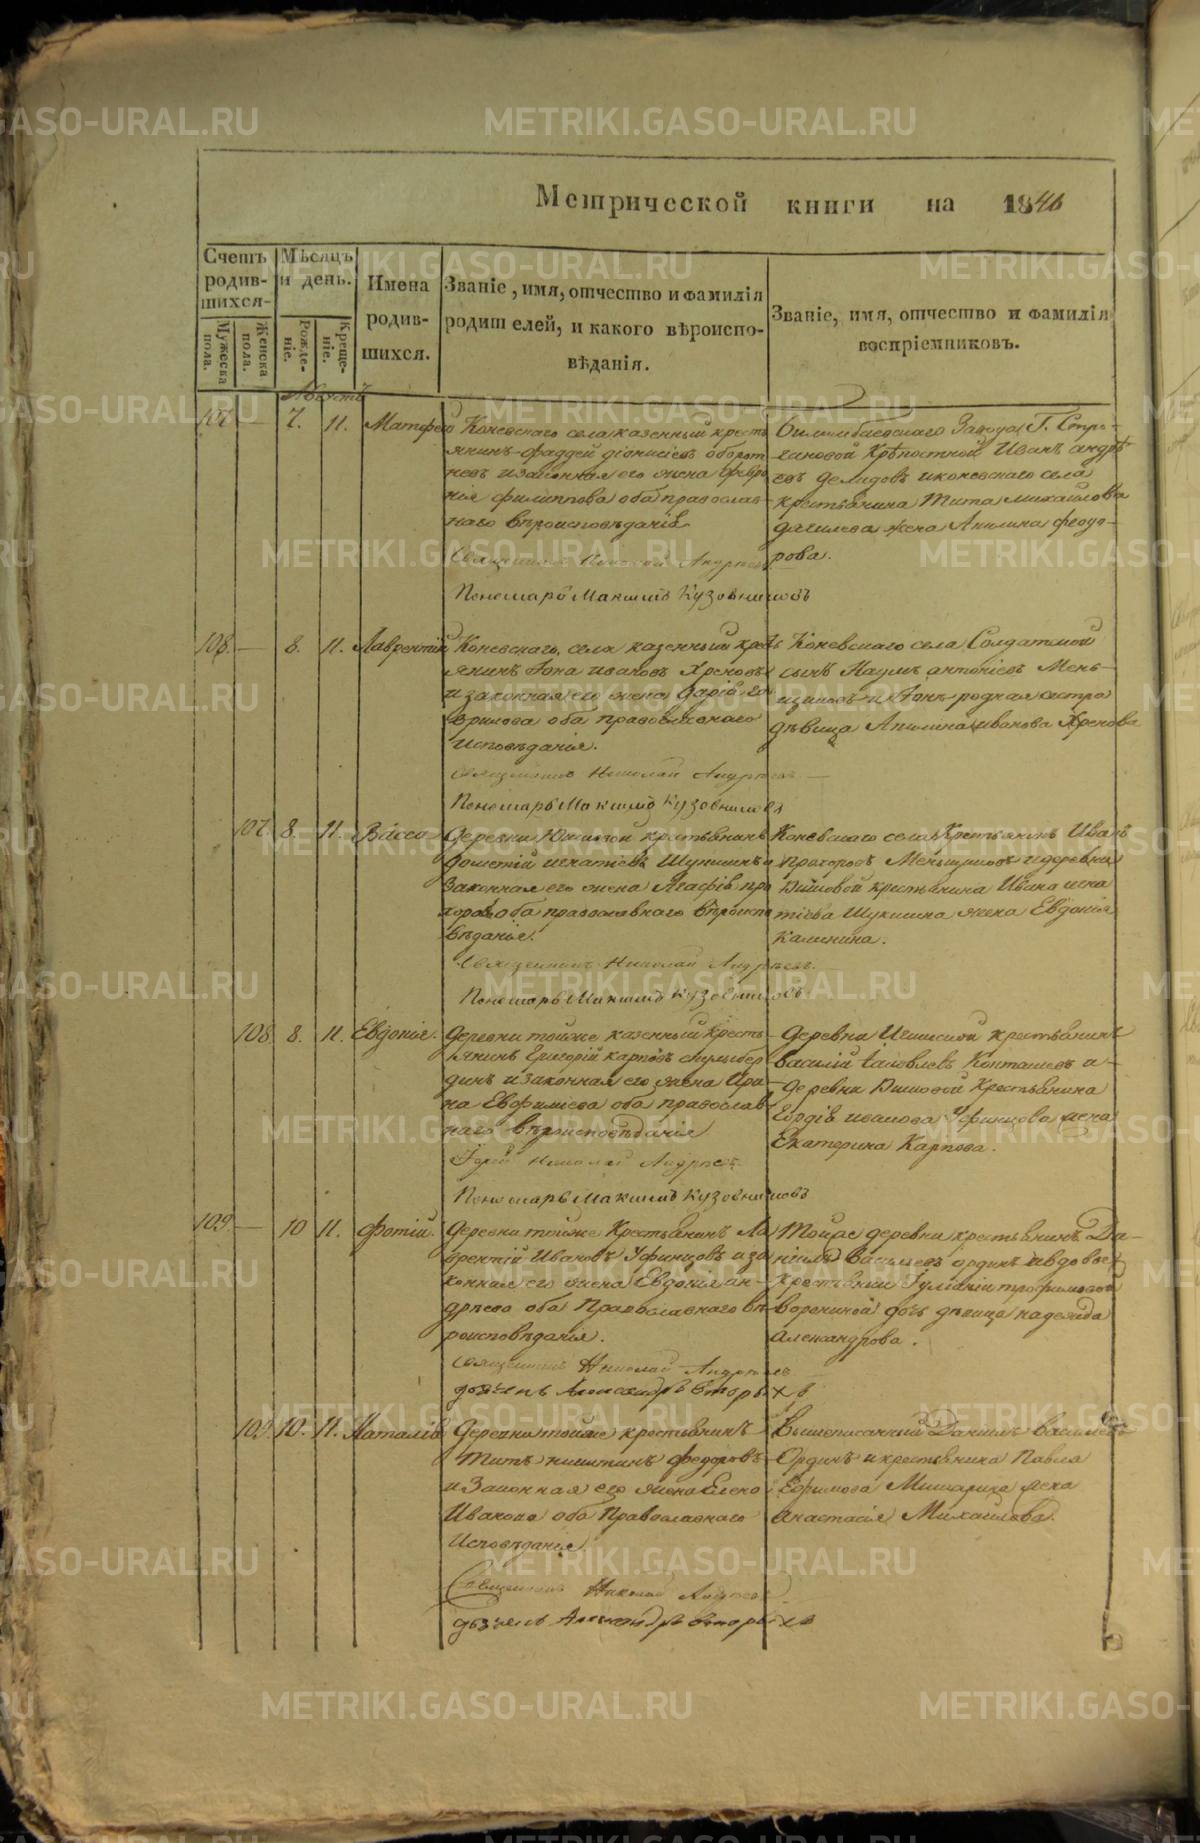 Метрической книги на 1846
Счетъ родив- шихся.
Мѣсяцъ и день.
Имена родив- шихся.
Званіе, имя, отчество и фамилія
родителей, и какого вѣроиспо-
вѣданія.
Званіе, имя, отчество и фамилія
воспріемниковъ.
Мужеска пола.
Женска пола.
Рожде- ніе.
Креще- ніе.
Августъ
107 — 7. 11. Матфей
Коневскаго села казенный кресть
янинъ Фаддей Діонисіевъ
и законная его жена Февро
нія Филиппова оба православ
наго вѣроисповѣданія
Священникъ Николай Андреевъ
Пономарь Максимъ Кузовниковъ
Билимбаевскаго Завода Г. Стро-
гановой Крѣпостной Иванъ Андрѣ
евъ Демидовъ и Коневскаго села
крестьянина Тита Михайлова
жена Акилина Феодо-
рова.
108. — 8. 11. Лаврентій
Коневскаго села казенный крест
янинъ Іона Ивановъ Хреновъ
и законная его жена Дарія Га
врилова оба православнаго
исповѣданія.
Священникъ Николай Андреевъ
Пономарь Максимъ Кузовниковъ
Коневскаго села Солдатской
сынъ Наумъ Антоніевъ Мень-
щиковъ и Іонѣ родная сестра
дѣвица Акилина Иванова Хренова
107. 8. 11. Васса
Деревни крестьянинъ
Игнатіевъ Щукинъ и
законная его жена Агафія Про
хорова оба православнаго вѣроиспо
вѣданія.
Священникъ Николай Андреевъ.
Пономарь Максимъ Кузовниковъ
Коневскаго села Крестьянинъ Иванъ
Прохоровъ Меньщиковъ и деревни
крестьянина Ивана Игна
тіева Щукина жена Евдокія
Калинина.
108. 8. 11. Евдокія.
Деревни тойже казенный кресть
янинъ Григорій Карповъ
и законная его жена Ири
на Евфиміева оба православ
наго вѣроисповѣданія
Іерей Николай Андреевъ
Пономарь Максимъ Кузовниковъ
Деревни крестьянинъ
Василій Іаковлевъ и
деревни Крестьянина
Иванова Уфинцова жена
Екатерина Карпова.
109 — 10 11. Фотій.
Деревни тойже Крестьянинъ Ла
врентій Ивановъ Уфинцовъ и за
конная его жена Евдокія Ан-
дреева оба Православнаго вѣ
роисповѣданія.
Священникъ Николай Андреевъ
дьячекъ Александръ Вторыхъ
Тойже деревни крестьянинъ Да-
ніилъ Васильевъ Ординъ и вдовой
крестьянки Іуліаніи Трофимовой
Ворениной дочь дѣвица Надежда
Александрова.
109. 10. 11. Наталія
Деревни тойже крестьянинъ
Титъ Никитинъ Федоровъ
и Законная его жена Елена
Иванова оба Православнаго
Исповѣданія.
Священникъ Николай Андреевъ
дьячекъ Александръ Вторыхъ
Вышеписанный Даніилъ Васильевъ
Ординъ и крестьянина Павла
Ефимова жена
Анастасія Михайлова.
METRIKI.GASO-URAL.RU